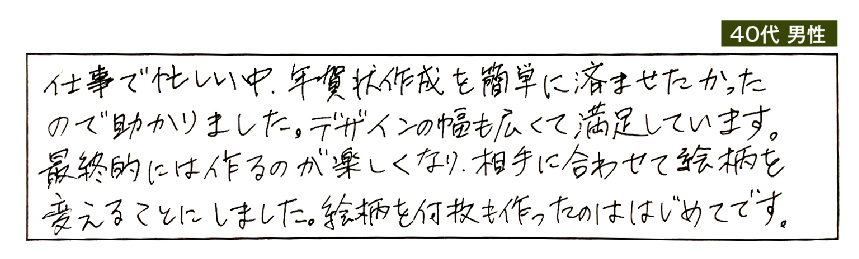 40代 男性
仕事で忙しい中、年賀状作成を簡単に済ませたかった
ので助かりました。デザインの幅も広くて満足しています。
最終的には作るのが楽しくなり、相手に合わせて絵柄を
変えることにしました。絵柄を何枚も作ったのははじめてです。